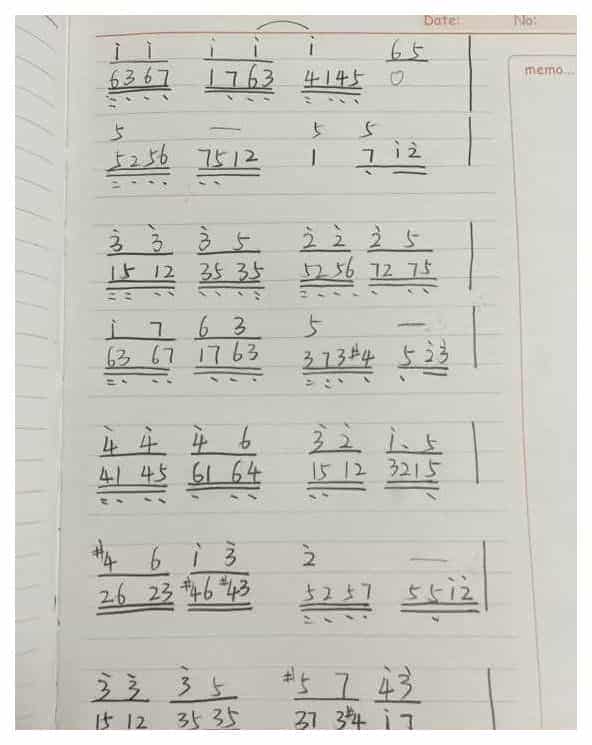 Date: No:
memo...
i i i i i 6 5
6367 1763 4145 0
5 — 5 5
5256 7512 1 7 i2
3 3 3 5 2 2 2 5
15 12 35 35 52 56 72 75
i 7 6 3 5 —
63 67 17 63 373#4 5 23
4 4 4 6 3 2 i. 5
41 45 61 64 15 12 3215
#4 6 i 3 2 —
26 23 #46 #43 5257 55i2
3 3 3 5 #5 7 4 3
15 12 35 35 37 3#4 i7